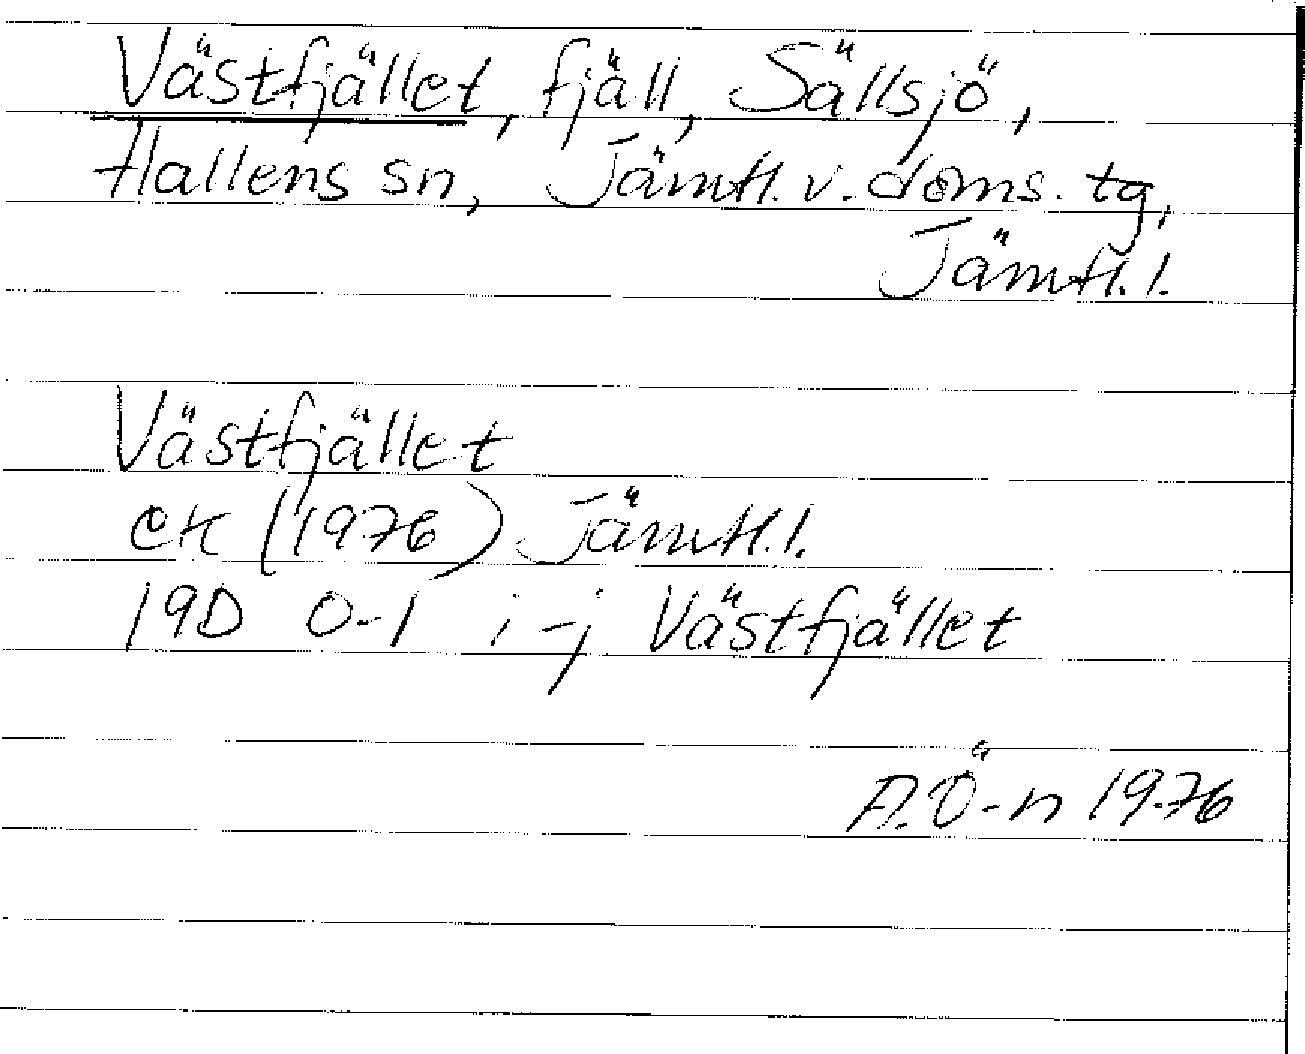 Västfjället, fjäll, Sällsjö,
Hallens sn, Jämtl. v. doms. tg,
Jämtl. l.
Västfjället
ek (1976) Jämtl. l.
19D 0-1 i-j Västfjället
A. Ö-n 1976